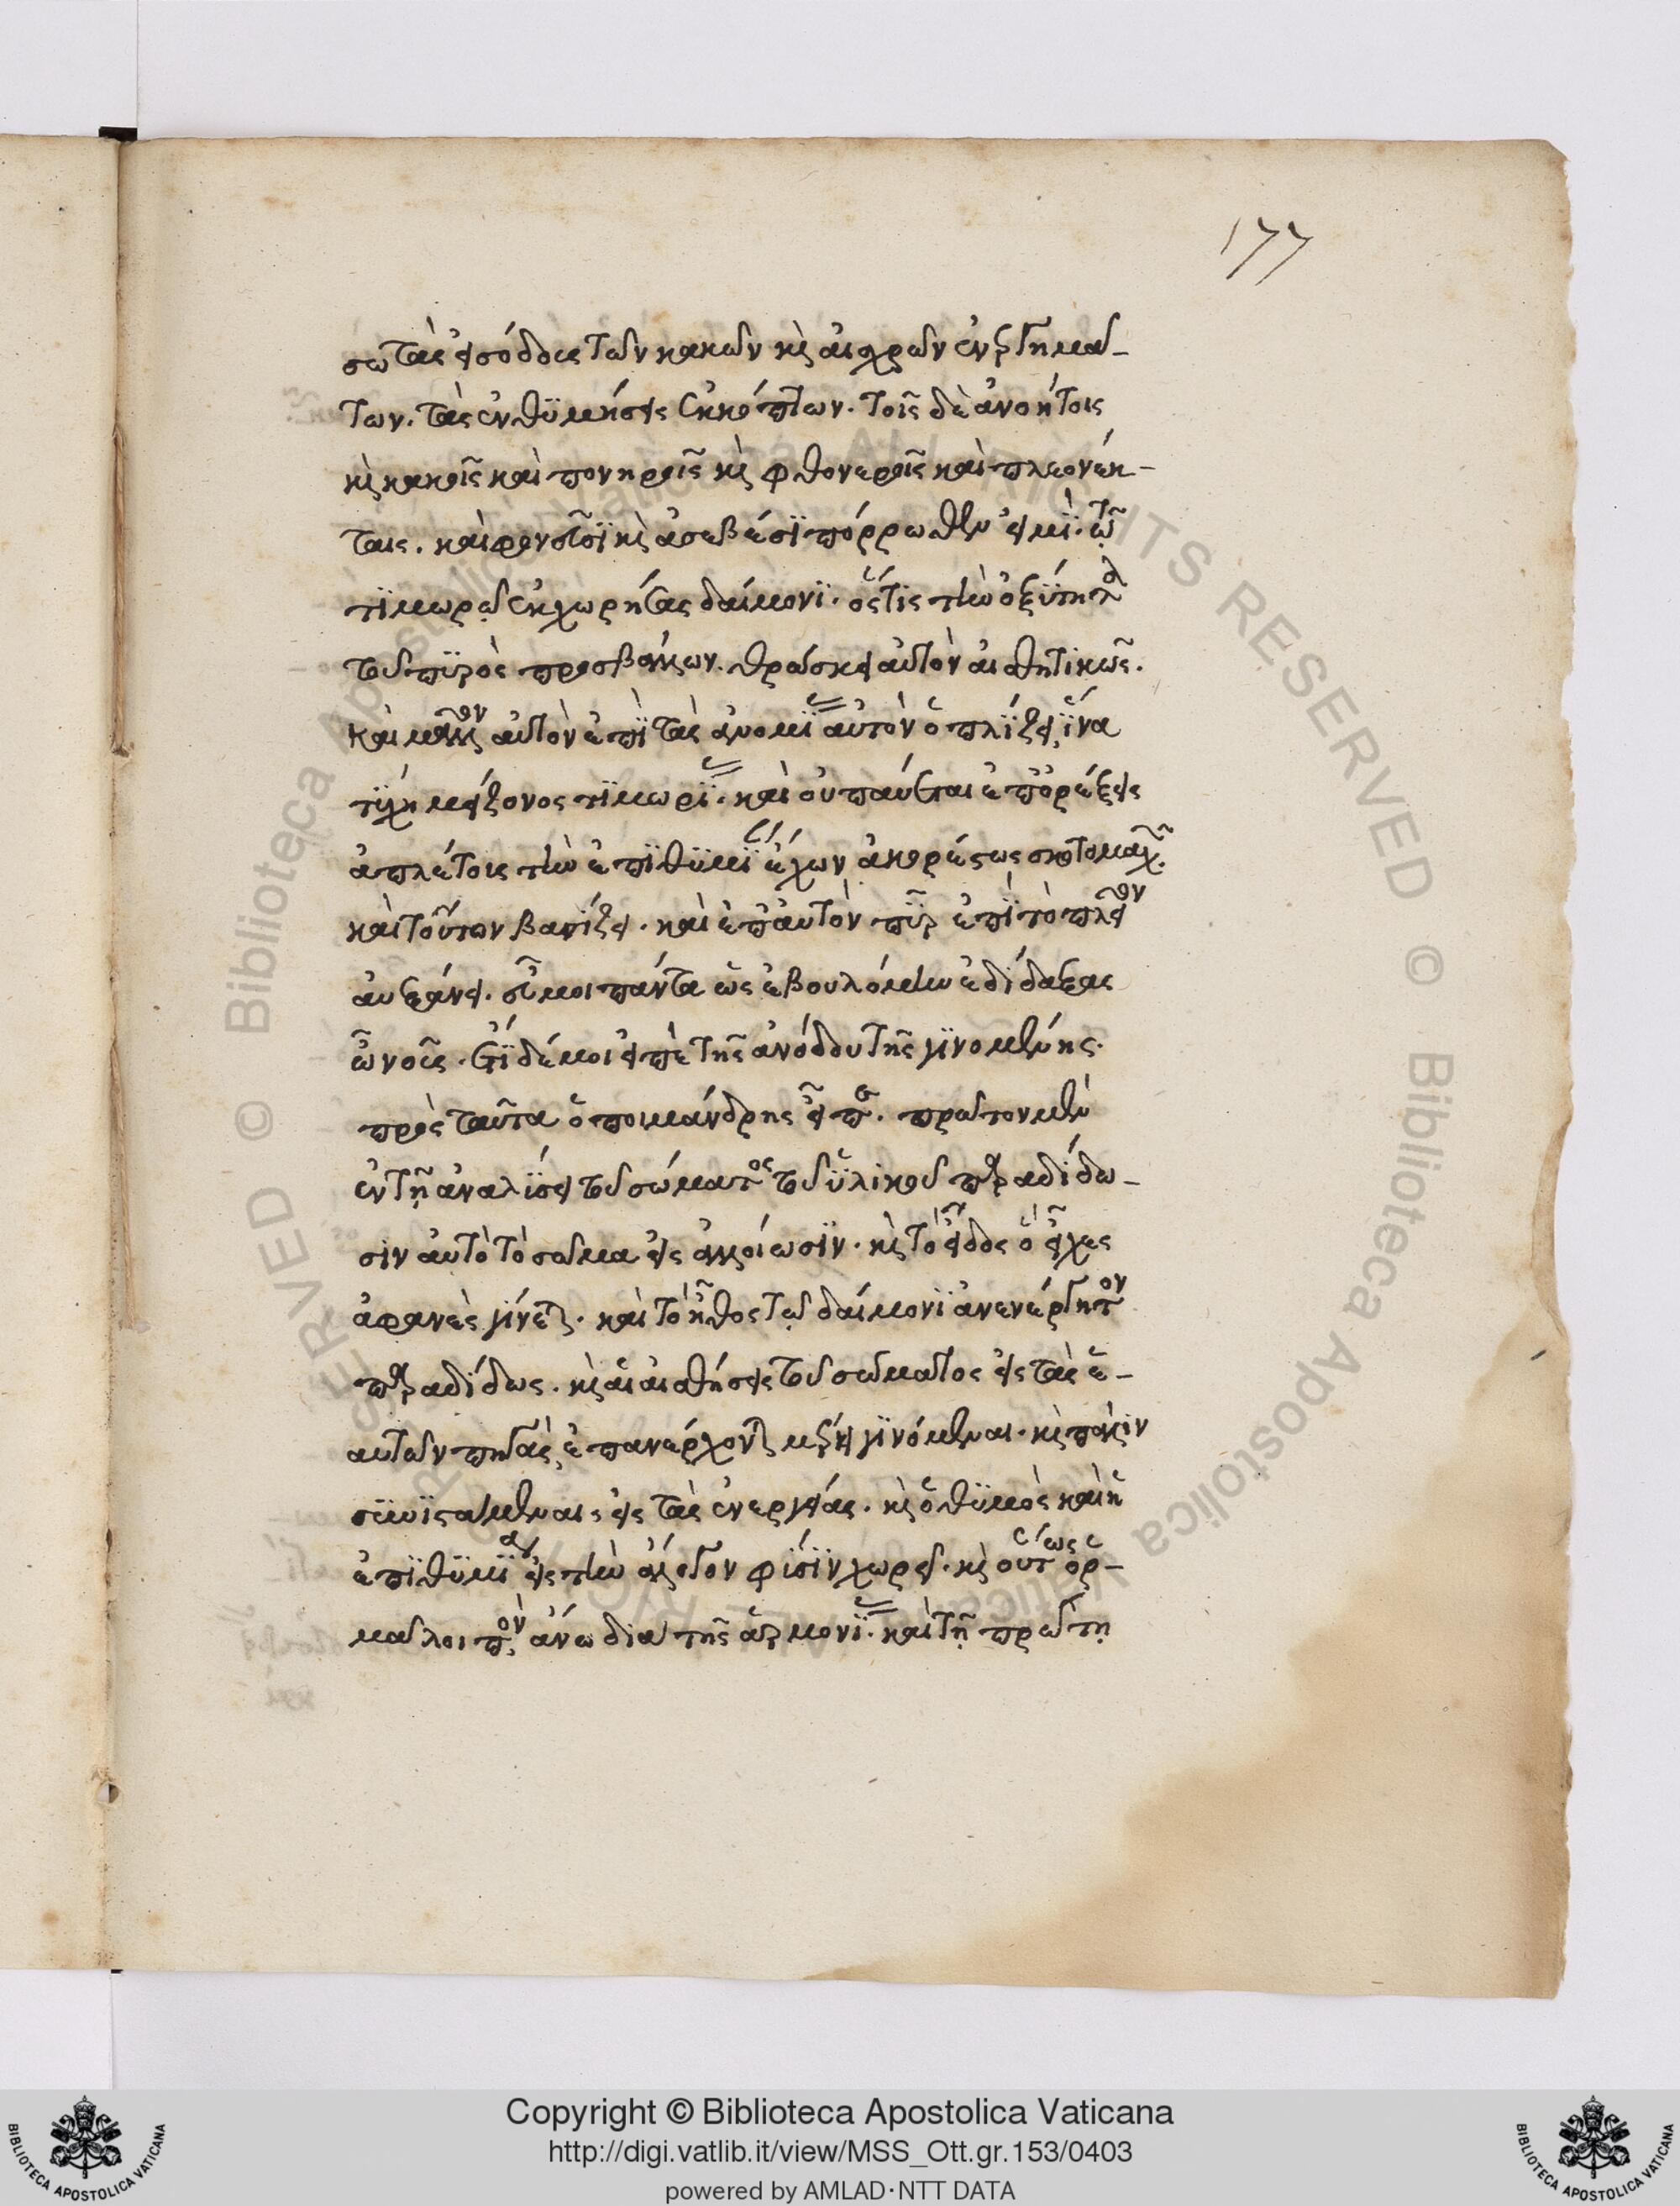 177
σω τὰς εἰσόδους τῶν κακῶν καὶ αἰσχρῶν ἐνεργημά-
των. τὰς ἐνθϋμήσεις ἐκκόπτων. τοῖς δὲ ἀνοήτοις
καὶ κακοῖς καὶ πονηροῖς καὶ φθονεροῖς καὶ πλεονέκ-
ταις. καὶ φονεῦσϊ καὶ ἀσεβέσϊ πόρρωθεν εἰμϊ. τῷ
τϊμωρῷ ἐκχωρήσας δαίμονϊ. ὅστις τὴν ὀξϋτητα
τοῦ πϋρὸς προσβάλλων. θρώσκει αὐτὸν αἰσθητικῶς.
καὶ μᾶλλον αὐτὸν ἐπϊ τὰς ἀνομϊας αὐτὸν ὁπλϊζει, ϊνα
τϋχη μείζονος τϊμωρϊας. καὶ οὐ παύεται ἐπ' ὀρέξεις
ἀπλέτους τὴν ἐπϊθϋμϊαν ἔχων ἀκορέστως σκοτομαχῶν.
καὶ τοῦτον βασανίζει. καὶ ἐπ' αὐτὸν πῦρ ἐπϊ τὸ πλεῖον
αὐξάνει. εὖ μοι πάντα ὡς ἐβουλόμην ἐδίδαξας
ὦ νοῦς. ἔτϊ δέ μοι εἰπὲ τῆς ἀνόδου τῆς γϊνομένης.
πρὸς ταῦτα ὁ ποιμάνδρης εἶπε. πρῶτον μὲν
ἐν τῇ ἀναλϋσει τοῦ σώματος τοῦ ϋλικοῦ παραδίδω-
σιν αὐτὸ τὸ σῶμα εἰς ἀλλοίωσϊν. καὶ τὸ εἶδος ὃ εἶχες
ἀφανὲς γίνεται. καὶ τὸ ἦθος τῷ δαίμονϊ ἀνενέργητον
παραδίδως. καὶ αἱ αἰσθήσεις τοῦ σώματος εἰς τὰς ἑ-
αυτῶν πηγὰς, ἐπανέρχονται μέρη γϊνόμεναι. καὶ πάλιν
σϋνϊστάμεναι, εἰς τὰς ἐνεργείας. καὶ ὁ θϋμὸς καὶ ἡ
ἐπϊθϋμϊα εἰς τὴν ἄλογον φϋσϊν χωρεῖ. καὶ οὕτως ὁρ-
μᾷ λοιπὸν, ἄνω διὰ τῆς ἁρμονϊας. καὶ τῇ πρώτῃ
Copyright © Biblioteca Apostolica Vaticana
http://digi.vatlib.it/view/MSS_Ott.gr.153/0403
powered by AMLAD·NTT DATA